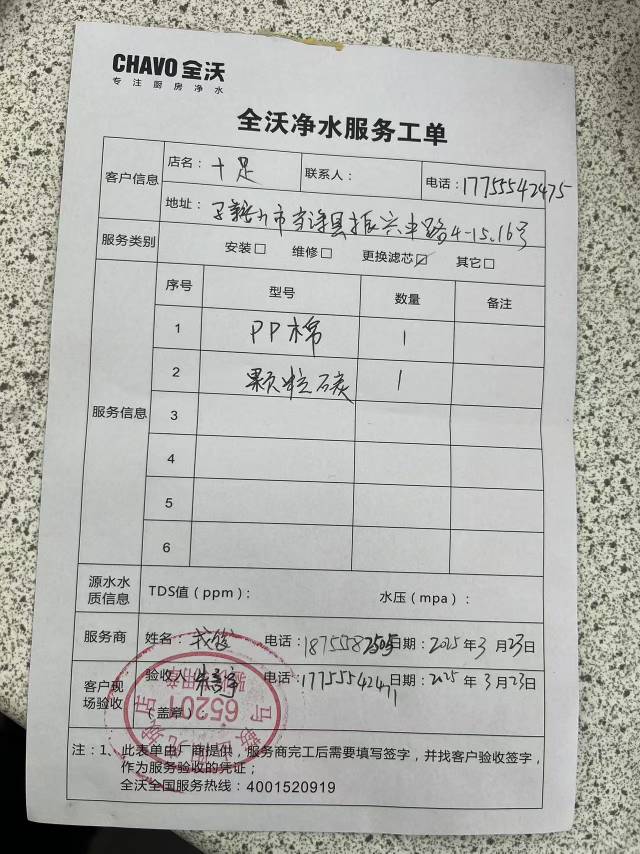 CHAVO 全沃
专注厨房净水
全沃净水服务工单
客户信息 店名：十足 联系人： 电话：17755542475
地址：马鞍山市当涂县振兴中路4-15.16号
服务类别 安装□ 维修□ 更换滤芯☑ 其它□
服务信息
序号 型号 数量 备注
1 PP棉 1
2 颗粒碳 1
3
4
5
6
源水水质信息 TDS值（ppm）： 水压（mpa）：
服务商 姓名： 电话：18755582505 日期：2025年3月23日
客户现场验收 验收人 电话：17755542471 日期：2025年3月23日
（盖章）
65201
注：1、此表单由厂商提供，服务商完工后需要填写签字，并找客户验收签字，
作为服务验收的凭证；
全沃全国服务热线：4001520919